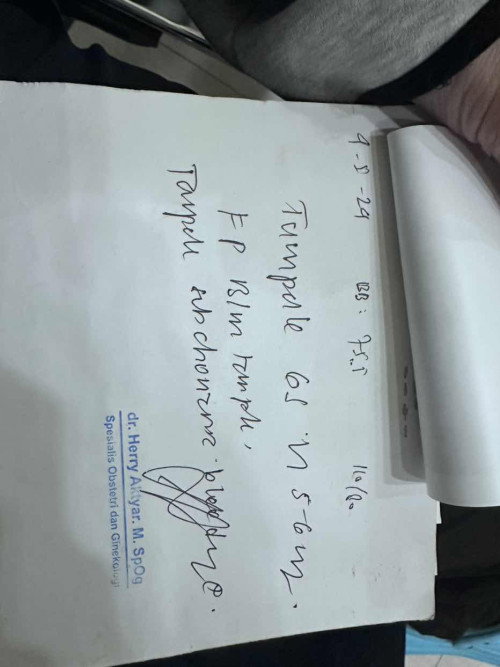 9-5-24 BB: 75.5 110/80
Tampak GS ~ 5-6 m.
FP Blm tampak,
Tampak subchorionic bleeding.
dr. Herry Aktyar. M. SpOg
Spesialis Obstetri dan Ginekologi